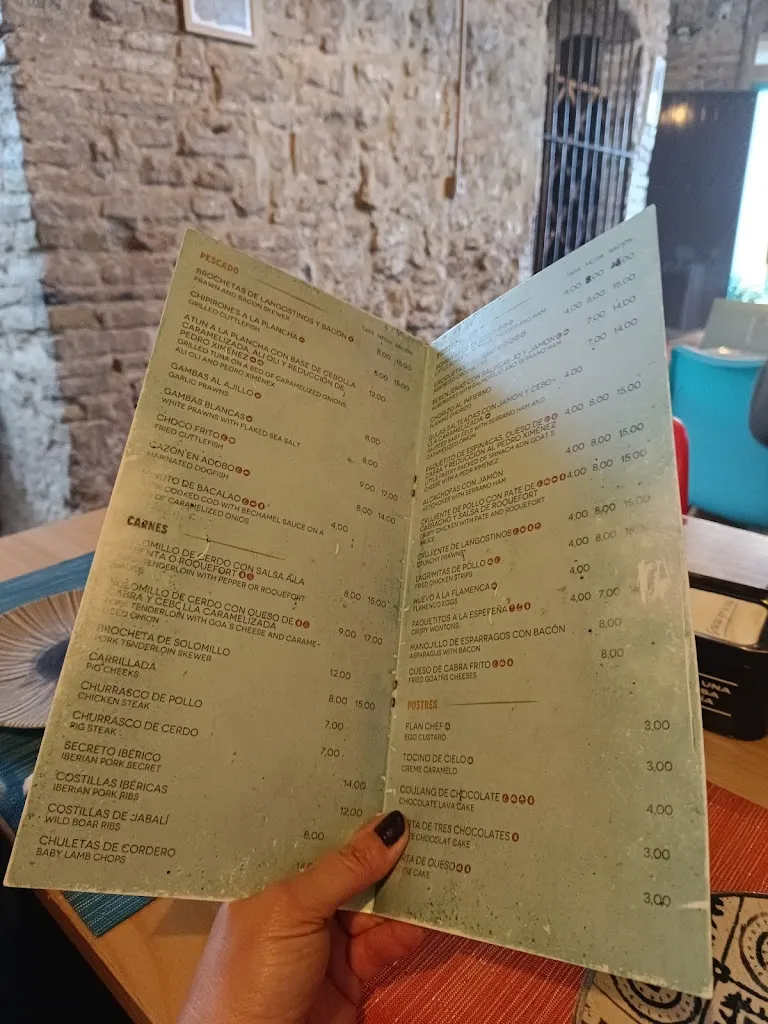 PESCADO
TAPA MEDIA RACIÓN
BROCHETAS DE LANGOSTINOS Y BACÓN
PRAWN AND BACON SKEWER
8.00 15.00
CHIPIRONES A LA PLANCHA
GRILLED CUTTLEFISH
8.00 15.00
ATUN A LA PLANCHA CON BASE DE CEBOLLA
CARAMELIZADA, ALI OLI Y REDUCCIÓN DE
PEDRO XIMÉNEZ
GRILLED TUNA ON A BED OF CARAMELIZED ONIONS,
ALI OLI AND PEDRO XIMENEX
12.00
GAMBAS AL AJILLO
GARLIC PRAWNS
8.00
GAMBAS BLANCAS
WHITE PRAWNS WITH FLAKED SEA SALT
8.00
CHOCO FRITO
FRIED CUTTLEFISH
9.00 17.00
CAZÓN EN ADOBO
MARINATED DOGFISH
8.00 14.00
DE BACALAO
COOKED COD WITH BECHAMEL SAUCE ON A
OF CARAMELIZED ONIOS
4.00
CARNES
SOLOMILLO DE CERDO CON SALSA A LA
PIMIENTA O ROQUEFORT
TENDERLOIN WITH PEPPER OR ROQUEFORT
SAUCE
8.00 15.00
SOLOMILLO DE CERDO CON QUESO DE
CABRA Y CEBOLLA CARAMELIZADA
PORK TENDERLOIN WITH GOA'S CHEESE AND CARAME-
ONION
9.00 17.00
BROCHETA DE SOLOMILLO
PORK TENDERLOIN SKEWER
12.00
CARRILLADA
PIG CHEEKS
8.00 15.00
CHURRASCO DE POLLO
CHICKEN STEAK
7.00
CHURRASCO DE CERDO
PIG STEAK
7.00
SECRETO IBÉRICO
IBERIAN PORK SECRET
14.00
COSTILLAS IBÉRICAS
IBERIAN PORK RIBS
12.00
COSTILLAS DE JABALÍ
WILD BOAR RIBS
8.00
CHULETAS DE CORDERO
BABY LAMB CHOPS
TAPA MEDIA RACIÓN
4.00 8.00 15.00
4.00 8.00 15.00
BERENJENAS CON SALMOREJO Y JAMÓN
7.00 14.00
CHORIZO AL INFIERNO
FLAMING CHORIZO
7.00 14.00
GULAS SALTEADAS CON JAMÓN Y CEBO-
LLA CARAMELIZADA
BAKED BABY EELS WITH SERRANO HAM AND
CARAMELIZED ONION
4.00
PAQUETITO DE ESPINACAS, QUESO DE
CABRA Y REDUCCIÓN AL PEDRO XIMÉNEZ
4.00 8.00 15.00
ALCACHOFAS CON JAMÓN
ARTICHOKER WITH SERRANO HAM
4.00 8.00 15.00
CRUJIENTE DE POLLO CON PATE DE
CABRACHO Y SALSA DE ROQUEFORT
CRISPY CHICKEN WITH PATE AND ROQUEFORT
SAUCE
4.00 8.00 15.00
CRUJIENTE DE LANGOSTINOS
CRUNCHY PRAWNS
4.00 8.00 15.00
LAGRIMITAS DE POLLO
FRIED CHICKEN STRIPS
4.00 8.00 15.00
HUEVO A LA FLAMENCA
FLAMENCO EGGS
4.00
PAQUETITOS A LA ESPEFEÑA
CRISPY WONTONS
4.00 7.00
MANOJILLO DE ESPARRAGOS CON BACÓN
ASPARAGUS WITH BACON
8.00
QUESO DE CABRA FRITO
FRIED GOATÑS CHEESES
8.00
POSTRES
FLAN CHEF
EGG CUSTARD
3.00
TOCINO DE CIELO
CREME CARAMELO
3.00
COULANG DE CHOCOLATE
CHOCOLATE LAVA CAKE
4.00
TARTA DE TRES CHOCOLATES
CHOCOLAT CAKE
3.00
TARTA DE QUESO
CAKE
3.00
UNA